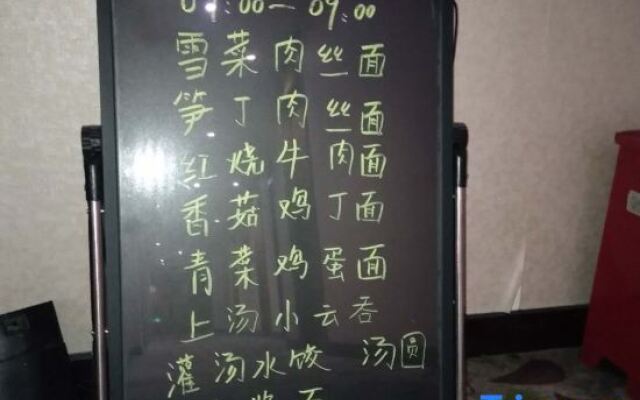 07:00—09:00
雪菜肉丝面
笋丁肉丝面
红烧牛肉面
香菇鸡丁面
青菜鸡蛋面
上汤小云吞
灌汤水饺 汤圆